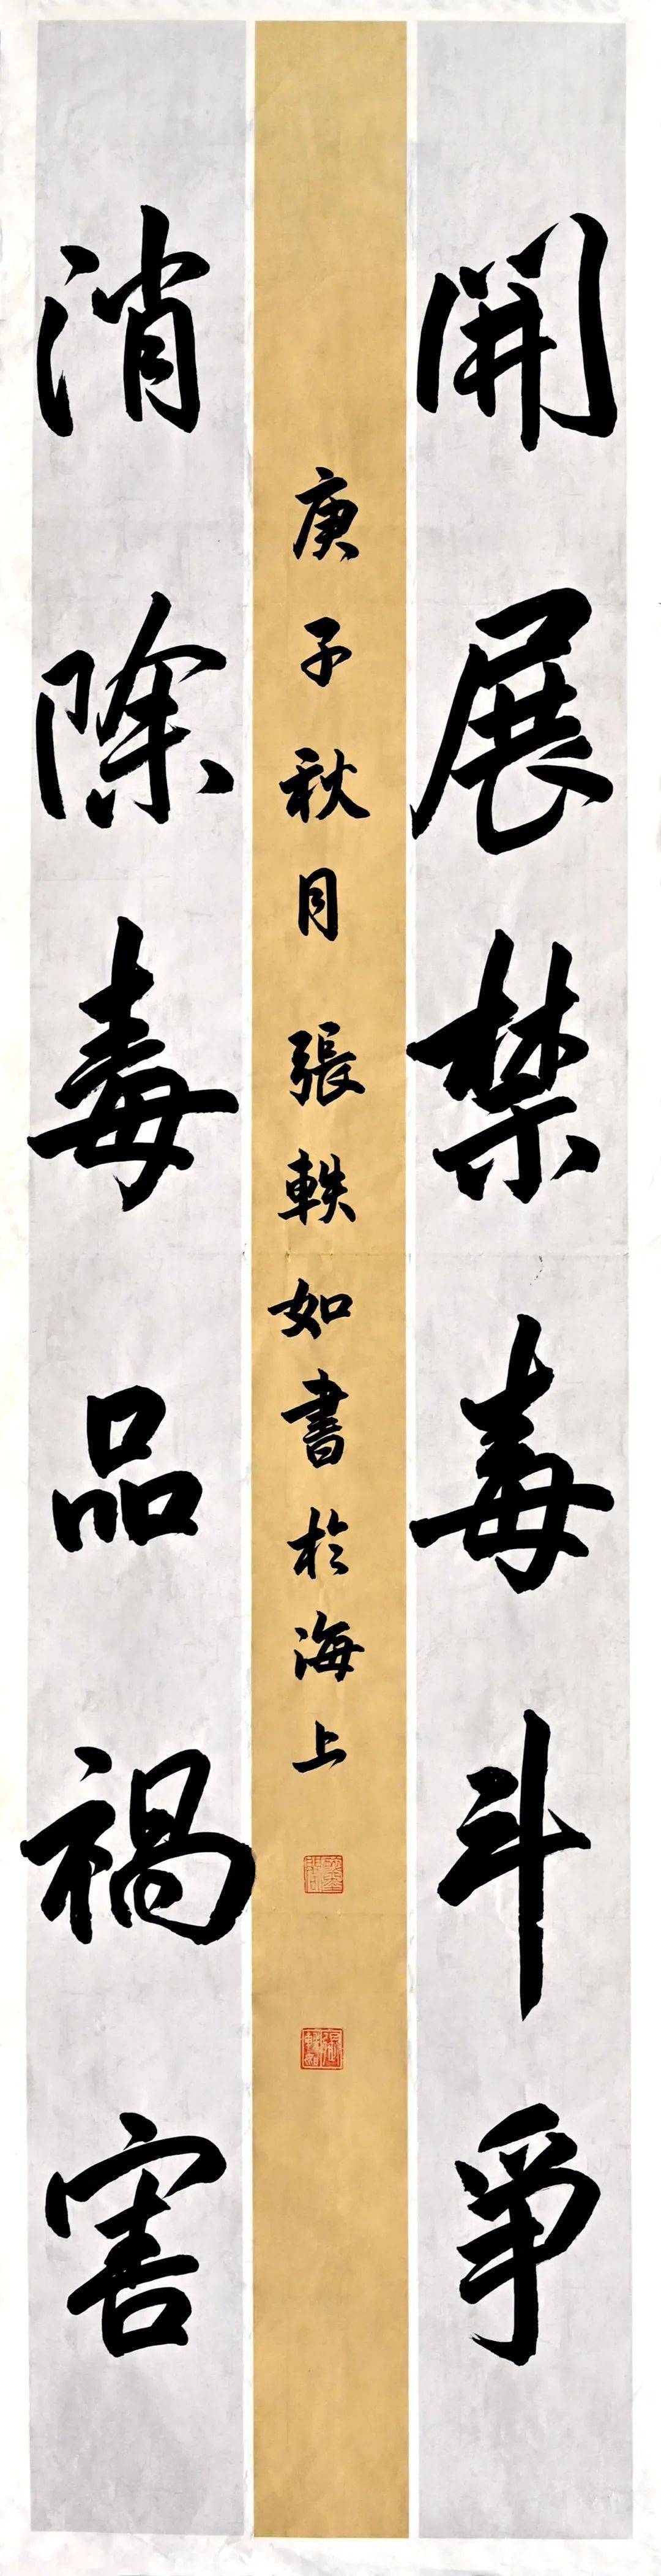 開展禁毒斗爭
消除毒品禍害
庚子秋月 張軼如書於海上